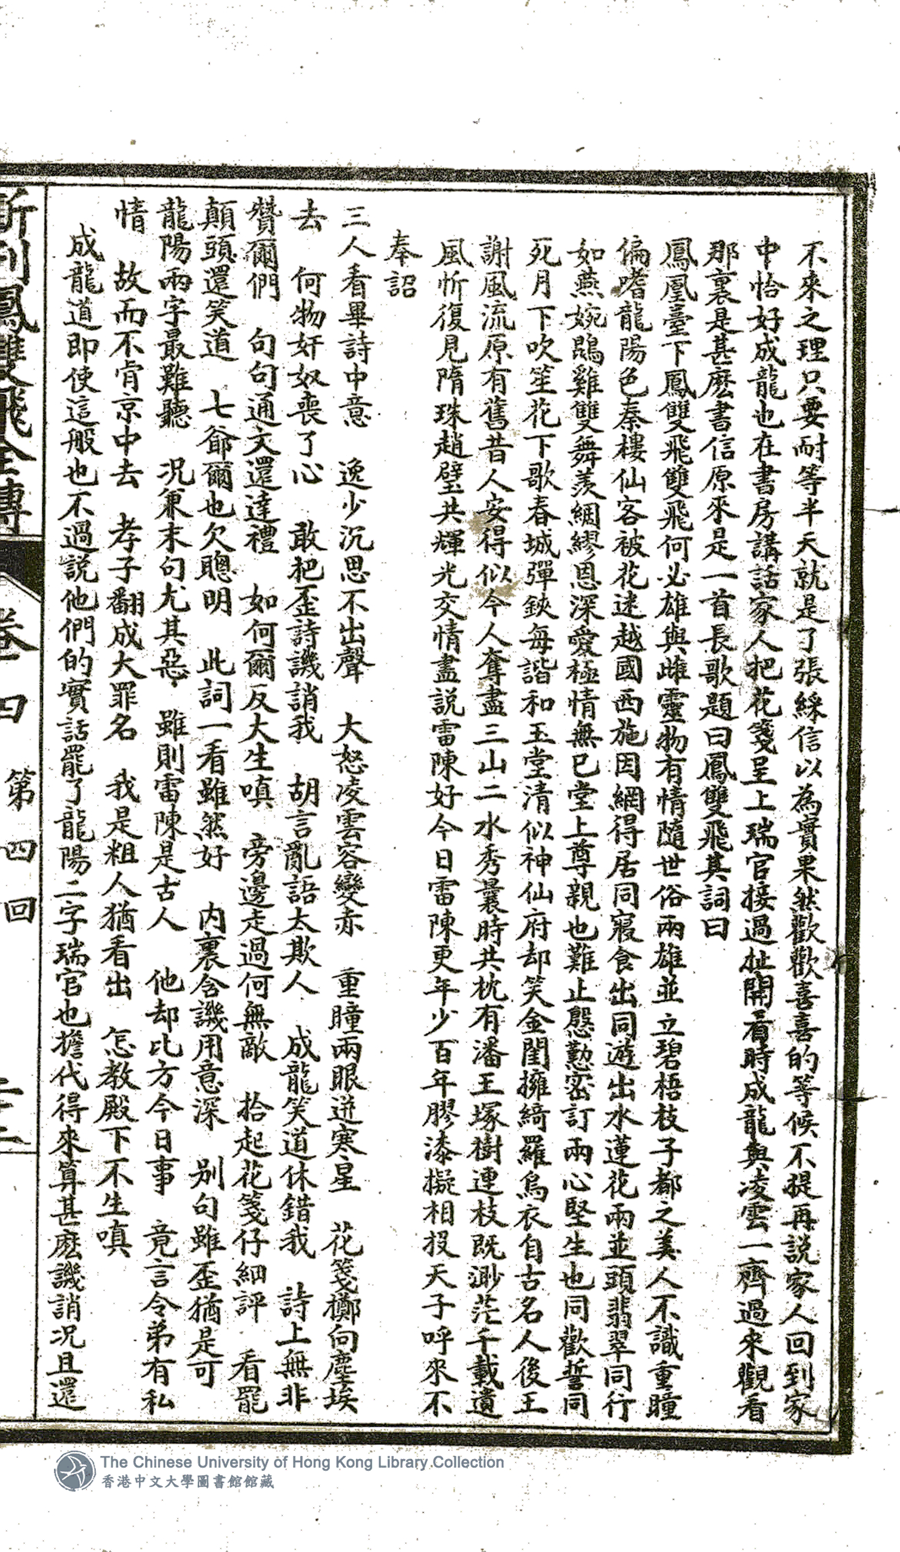 不來之理只要耐等半天就是了張綵信以為實果然歡歡喜喜的等候不提再說家人回到家
中恰好成龍也在書房講話家人把花箋呈上瑞官接過扯開看時成龍與凌雲一齊過來觀看
那裏是甚麽書信原來是一首長歌題曰鳳雙飛其詞曰
鳳凰臺下鳳雙飛雙飛何必雄與雌靈物有情隨世俗兩雄並立碧梧枝子都之美人不識重瞳
偏嗜龍陽色秦樓仙客被花迷越國西施因網得居同寢食出同遊出水蓮花兩並頭翡翠同行
如燕婉鵾雞雙舞羨綢繆恩深愛極情無已堂上尊親也難止慇懃密訂兩心堅生也同歡誓同
死月下吹笙花下歌春城彈鋏每諧和玉堂清似神仙府却笑金閨擁綺羅烏衣自古名人後王
謝風流原有舊昔人安得似今人奪盡三山二水秀曩時共枕有潘王塚樹連枝既渺茫千載遺
風忻復見隋珠趙璧共輝光交情盡說雷陳好今日雷陳更年少百年膠漆擬相投天子呼來不
奉詔
三人看畢詩中意　逸少沉思不出聲　大怒凌雲容變赤　重瞳兩眼迸寒星　花箋擲向塵埃
去　何物奸奴喪了心　敢把歪詩譏誚我　胡言亂語太欺人　成龍笑道休錯我　詩上無非
贊爾們　句句通文還達禮　如何爾反大生嗔　旁邊走過何無敵　拾起花箋仔細評　看罷
顛頭還笑道　七爺爾也欠聰明　此詞一看雖然好　內裏含譏用意深　别句雖歪猶是可
龍陽兩字最難聽　況兼末句尤其惡　雖則雷陳是古人　他却比方今日事　竟言令弟有私
情　故而不肯京中去　孝子翻成大罪名　我是粗人猶看出　怎教殿下不生嗔
成龍道即使這般也不過說他們的實話罷了龍陽二字瑞官也擔代得來算甚麽譏誚况且還
新刊鳳雙飛全傳　卷十四　第四回　二十二
The Chinese University of Hong Kong Library Collection
香港中文大學圖書館館藏